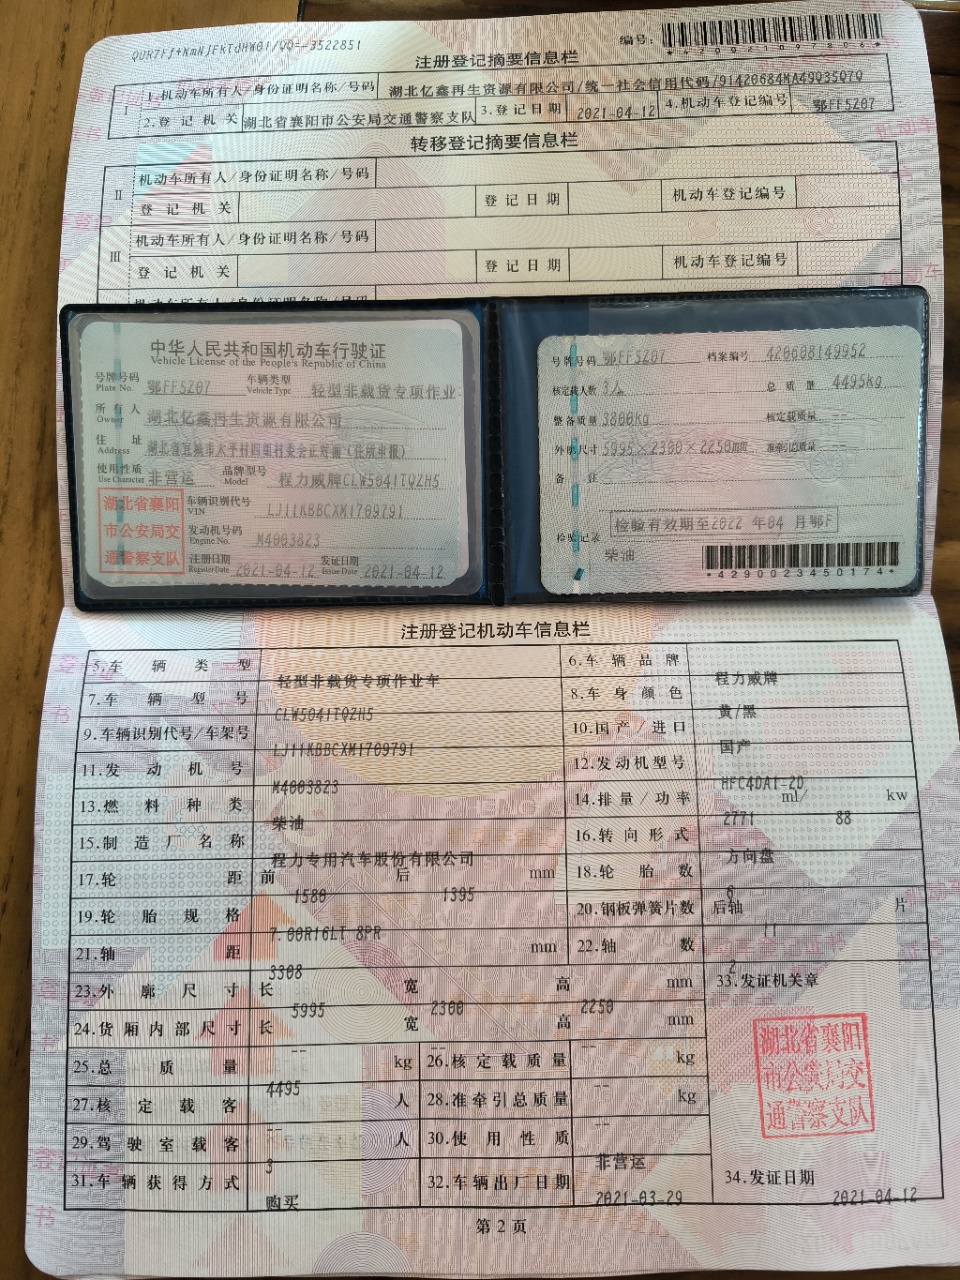 QUR7Ff+KmNjFkTdHW0f/QQ==3522851
编号:
*470921097806*
注册登记摘要信息栏
I 1.机动车所有人/身份证明名称/号码 湖北亿鑫再生资源有限公司/统一社会信用代码/91420684MA49Q35Q7Q
2.登记机关 湖北省襄阳市公安局交通警察支队 3.登记日期 2021-04-12 4.机动车登记编号 鄂FF5Z07
转移登记摘要信息栏
II 机动车所有人/身份证明名称/号码
登记机关 登记日期 机动车登记编号
III 机动车所有人/身份证明名称/号码
登记机关 登记日期 机动车登记编号
机动车所有人/身份证明名称/号码
中华人民共和国机动车行驶证
Vehicle License of the People's Republic of China
号牌号码 Plate No. 鄂FF5Z07 车辆类型 Vehicle Type 轻型非载货专项作业
所有人 Owner 湖北亿鑫再生资源有限公司
住址 Address 湖北省宜城市太平村四组村委会正对面(住所申报)
使用性质 Use Character 非营运 品牌型号 Model 程力威牌CLW5041TQZH5
湖北省襄阳
市公安局交
通警察支队
车辆识别代号 VIN LJ11KBBCXM1709791
发动机号码 Engine No. M4003823
注册日期 Register Date 2021-04-12 发证日期 Issue Date 2021-04-12
号牌号码 鄂FF5Z07 档案编号 420608149952
核定载人数 3人 总质量 4495kg
整备质量 3800kg 核定载质量 --
外廓尺寸 5995×2300×2250mm 准牵引总质量 --
备注
检验有效期至2022年04月鄂F
检验记录
柴油
*4290023450174*
注册登记机动车信息栏
5.车辆类型 轻型非载货专项作业车 6.车辆品牌 程力威牌
7.车辆型号 CLW5041TQZH5 8.车身颜色 黄/黑
9.车辆识别代号/车架号 LJ11KBBCXM1709791 10.国产/进口 国产
11.发动机号 M4003823 12.发动机型号 HFC4DA1-2D
13.燃料种类 柴油 14.排量/功率 2771 ml/ 88 kw
15.制造厂名称 程力专用汽车股份有限公司 16.转向形式 方向盘
17.轮距 前 1580 后 1395 mm 18.轮胎数 6
19.轮胎规格 7.00R16LT 8PR 20.钢板弹簧片数 后轴 11 片
21.轴距 3308 mm 22.轴数 2
23.外廓尺寸 长 5995 宽 2300 高 2250 mm 33.发证机关章
24.货厢内部尺寸 长 -- 宽 -- 高 -- mm
25.总质量 4495 kg 26.核定载质量 -- kg
27.核定载客 -- 人 28.准牵引总质量 -- kg
湖北省襄阳
市公安局交
通警察支队
29.驾驶室载客 3 人 30.使用性质 非营运
31.车辆获得方式 购买 32.车辆出厂日期 2021-03-29 34.发证日期 2021-04-12
第 2 页